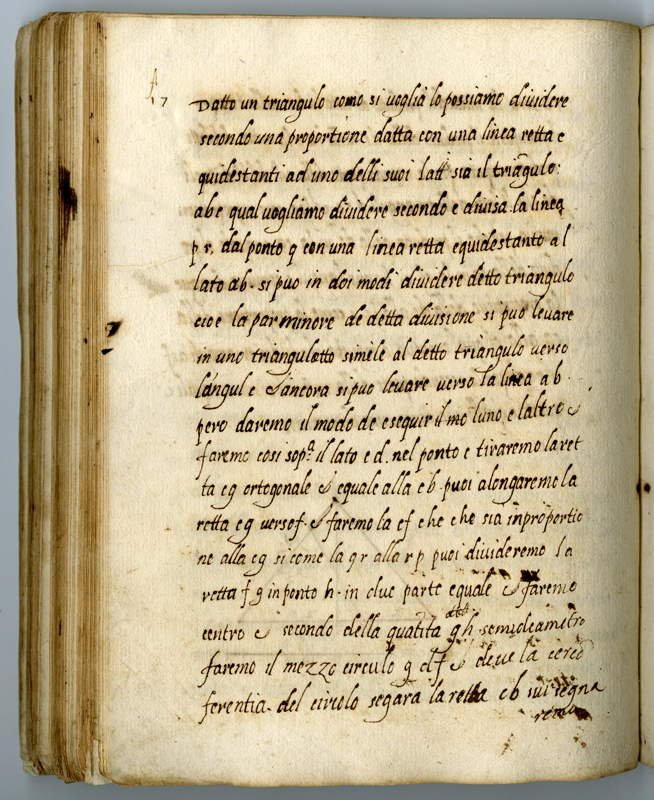 A
17 Datto un triangulo como si voglia lo possiamo dividere
secondo una proportione datta con una linea retta e
quidestanti ad uno delli suoi latti sia il triãgulo:
abc qual vogliamo dividere secondo e divisa la linea
p r. dal ponto q con una linea retta equidestanto al
lato ab. si puo in doi modi dividere detto triangulo
cioe la par minore de detta divisione si puo levare
in uno triangulatto simele al detto triangulo verso
langul c & ancora si puo levare verso la linea a b.
pero daremo il modo de esequir il mo luno e laltro &
faremo cosi sopa il lato c d. nel ponto c tiraremo la ret
ta c g ortogonale & equale alla c b. puoi alongaremo la
retta c g verso f. & faremo la c f che che sia in proportio
ne alla c g si come la q r alla r p puoi divideremo la
retta f g in ponto h. in due parte equale & faremo
centro & secondo della quatita g h semideamitro
faremo il mezzo circulo g d f & deve la circo
ferentia. del circolo segara la retta c b sui segna
remo